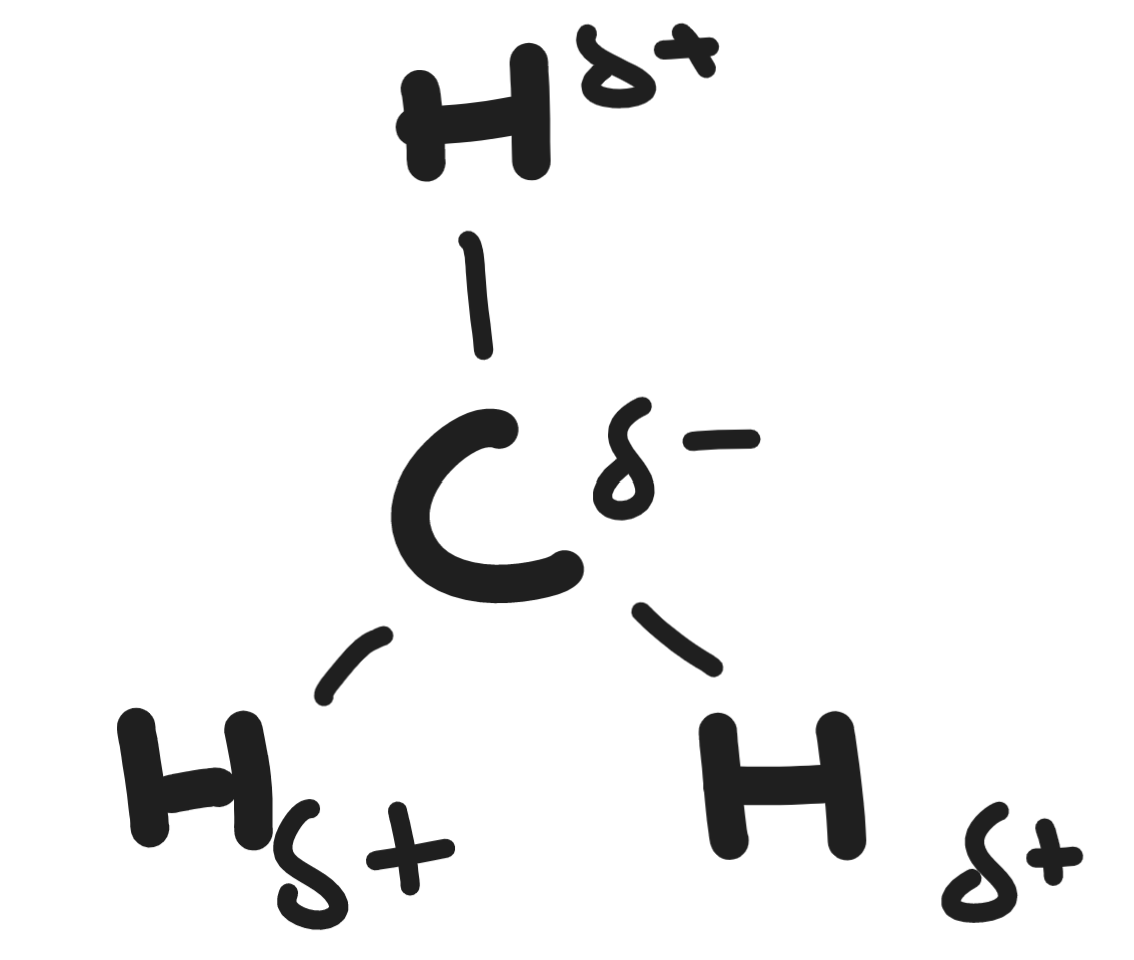 H δ+
C δ−
H δ+ H δ+